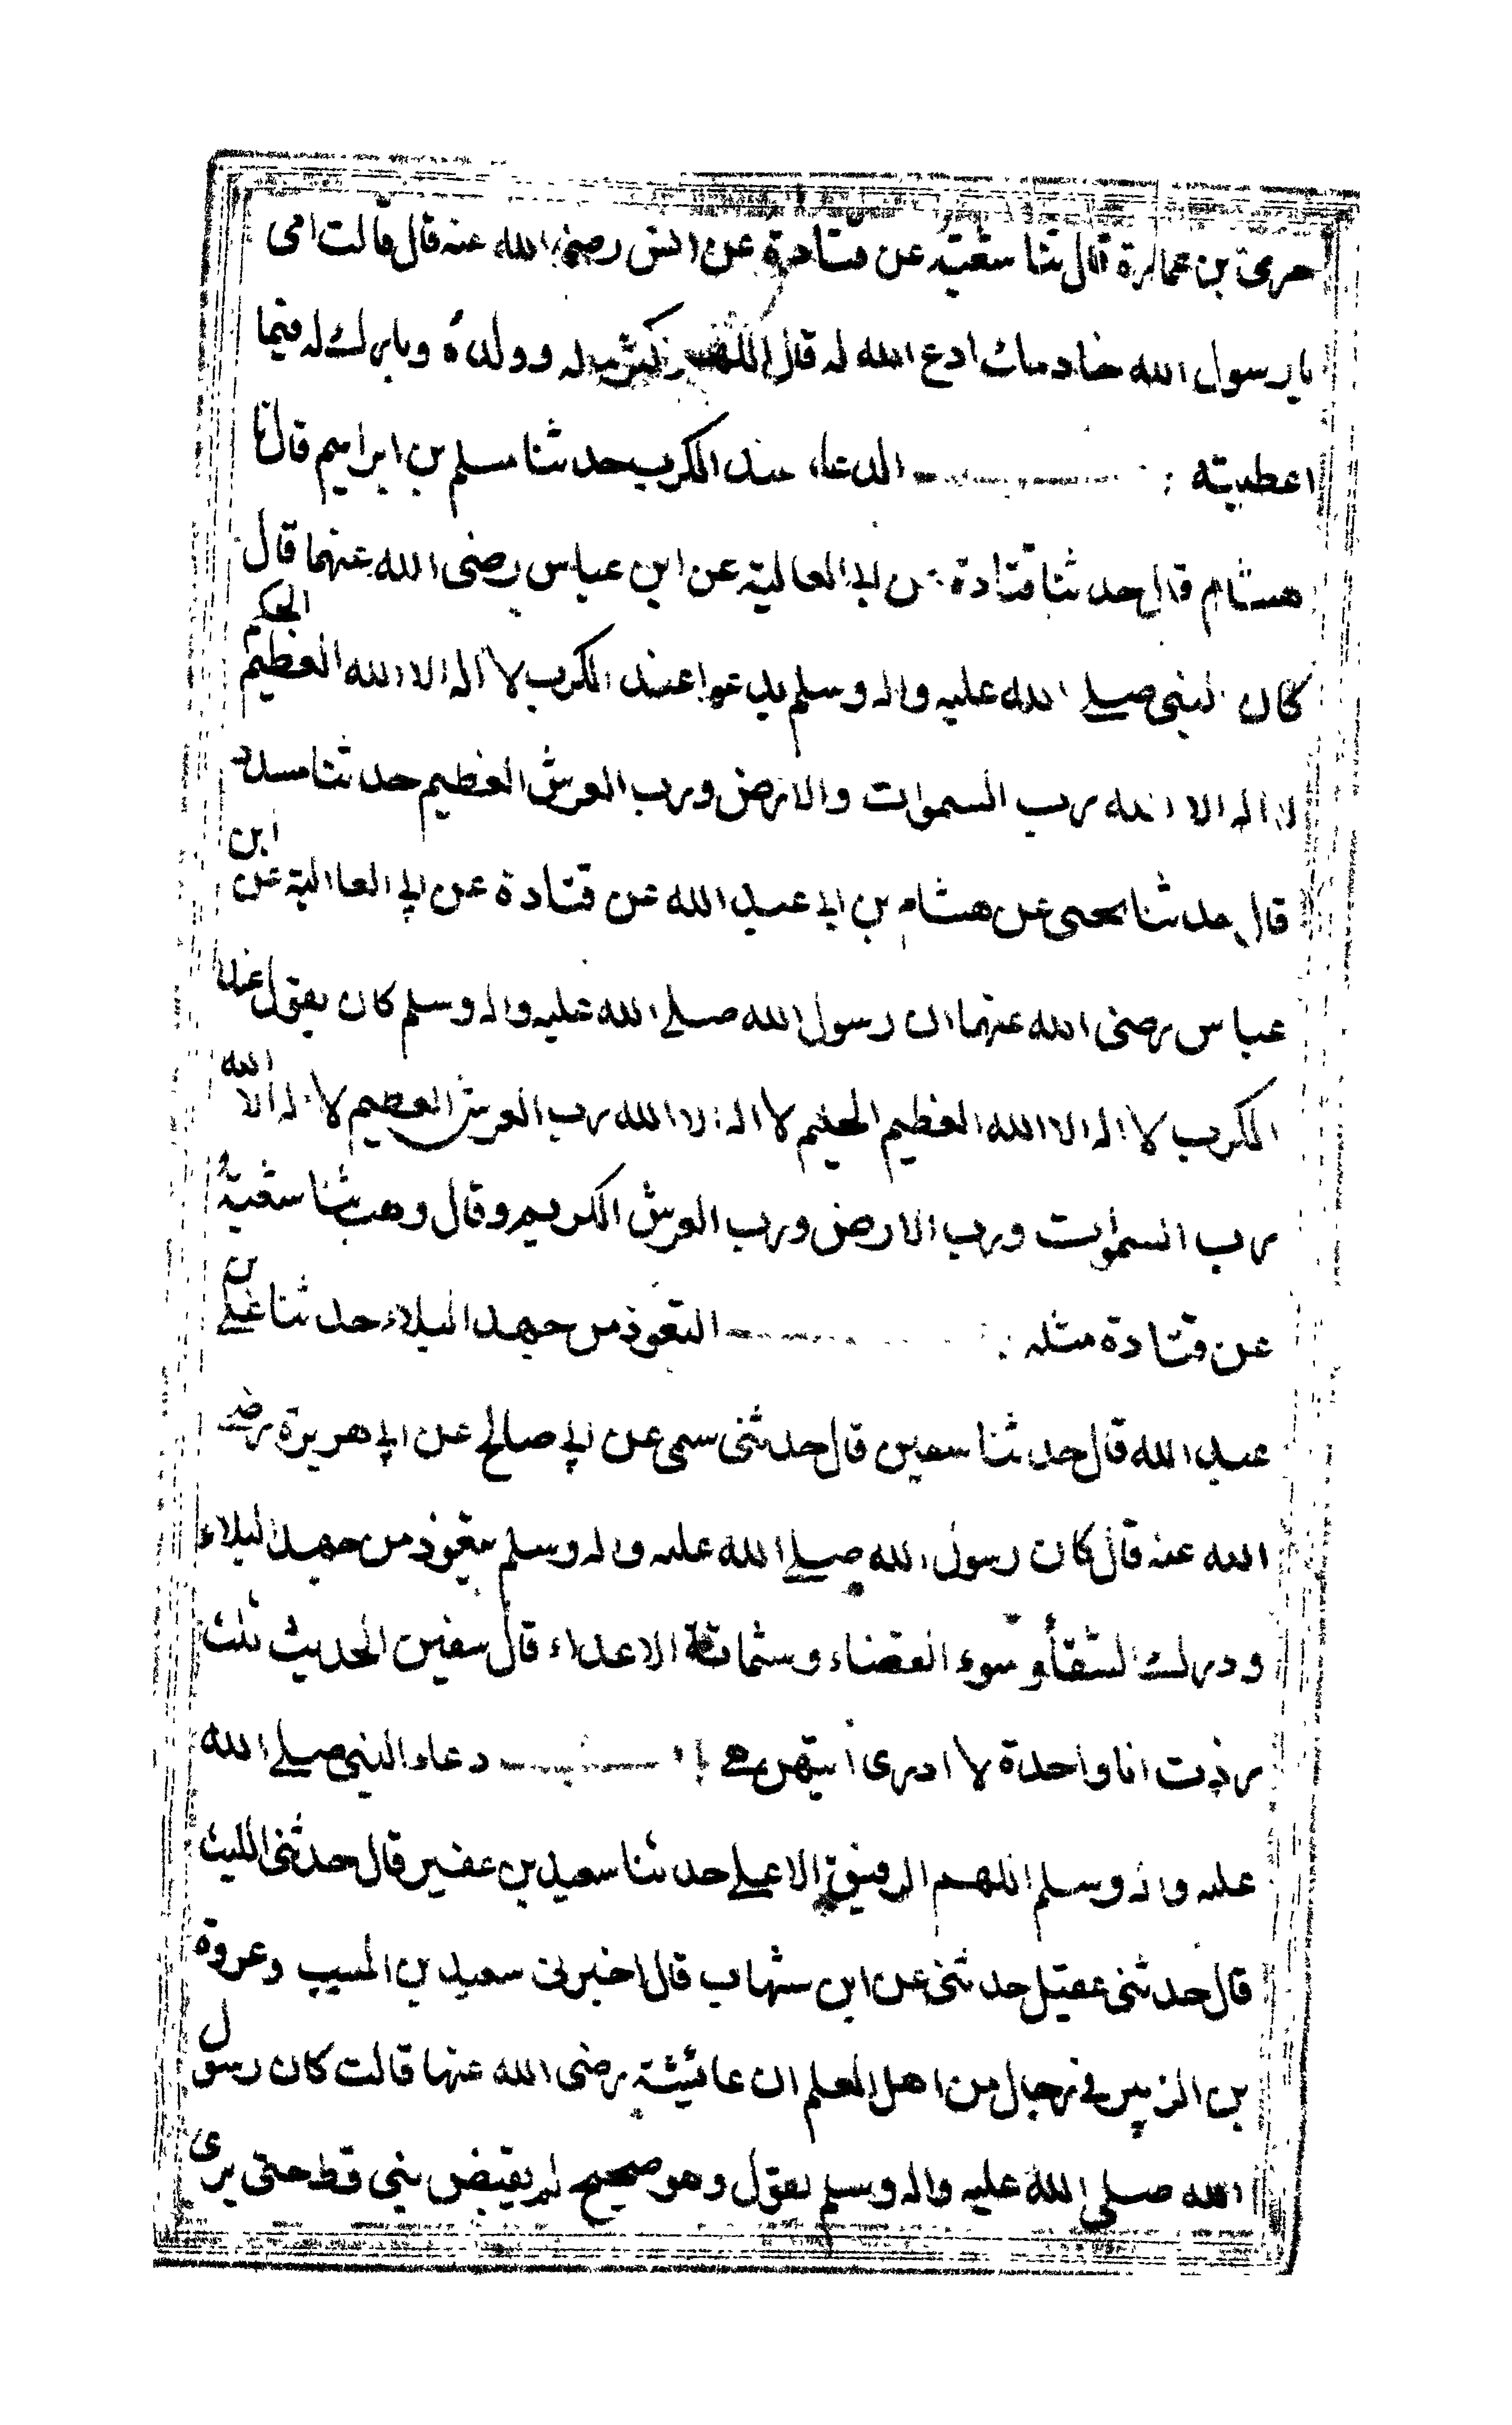 حرمى بن عمارة قال ثنا شعبة عن قتادة عن انس رضى الله عنه قال قالت امى
يا رسول الله خادمك ادع الله له قال اللهم اكثر ماله وولده وبارك له فيما
اعطيته : الدعاء عند الكرب حدثنا مسلم بن ابراهيم قال ثنا
هشام قال حدثنا قتادة عن ابى العالية عن ابن عباس رضى الله عنهما قال
كان النبى صلى الله عليه واله وسلم يدعوا عند الكرب لا اله الا الله العظيم الحكيم
لا اله الا الله رب السموات والارض ورب العرش العظيم حدثنا مسدد
قال حدثنا يحيى عن هشام بن ابى عبد الله عن قتادة عن ابى العالية عن ابن
عباس رضى الله عنهما ان رسول الله صلى الله عليه واله وسلم كان يقول عند
الكرب لا اله الا الله العظيم الحليم لا اله الا الله رب العرش العظيم لا اله الا الله
رب السموات ورب الارض ورب العرش الكريم وقال وهب ثنا شعبة
عن قتادة مثله : التعوذ من جهد البلاء حدثنا على بن
عبد الله قال حدثنا سفين قال حدثنى سمى عن ابى صالح عن ابى هريرة رضى
الله عنه قال كان رسول الله صلى الله عليه واله وسلم يتعوذ من جهد البلاء
ودرك الشقأ وسوء القضاء وشماتة الاعداء قال سفين الحديث ثلث
زدت انا واحدة لا ادرى ايتهن هى دعاء النبى صلى الله
عليه واله وسلم اللهم الرفيق الاعلى حدثنا سعيد بن عفير قال حدثنى الليث
قال حدثنى عقيل حدثنى عن ابن شهاب قال اخبرنى سعيد بن المسيب وعروة
بن الزبير فى رجال من اهل العلم ان عائشة رضى الله عنها قالت كان رسول
الله صلى الله عليه واله وسلم يقول وهو صحيح لم يقبض نبى قط حتى يرى